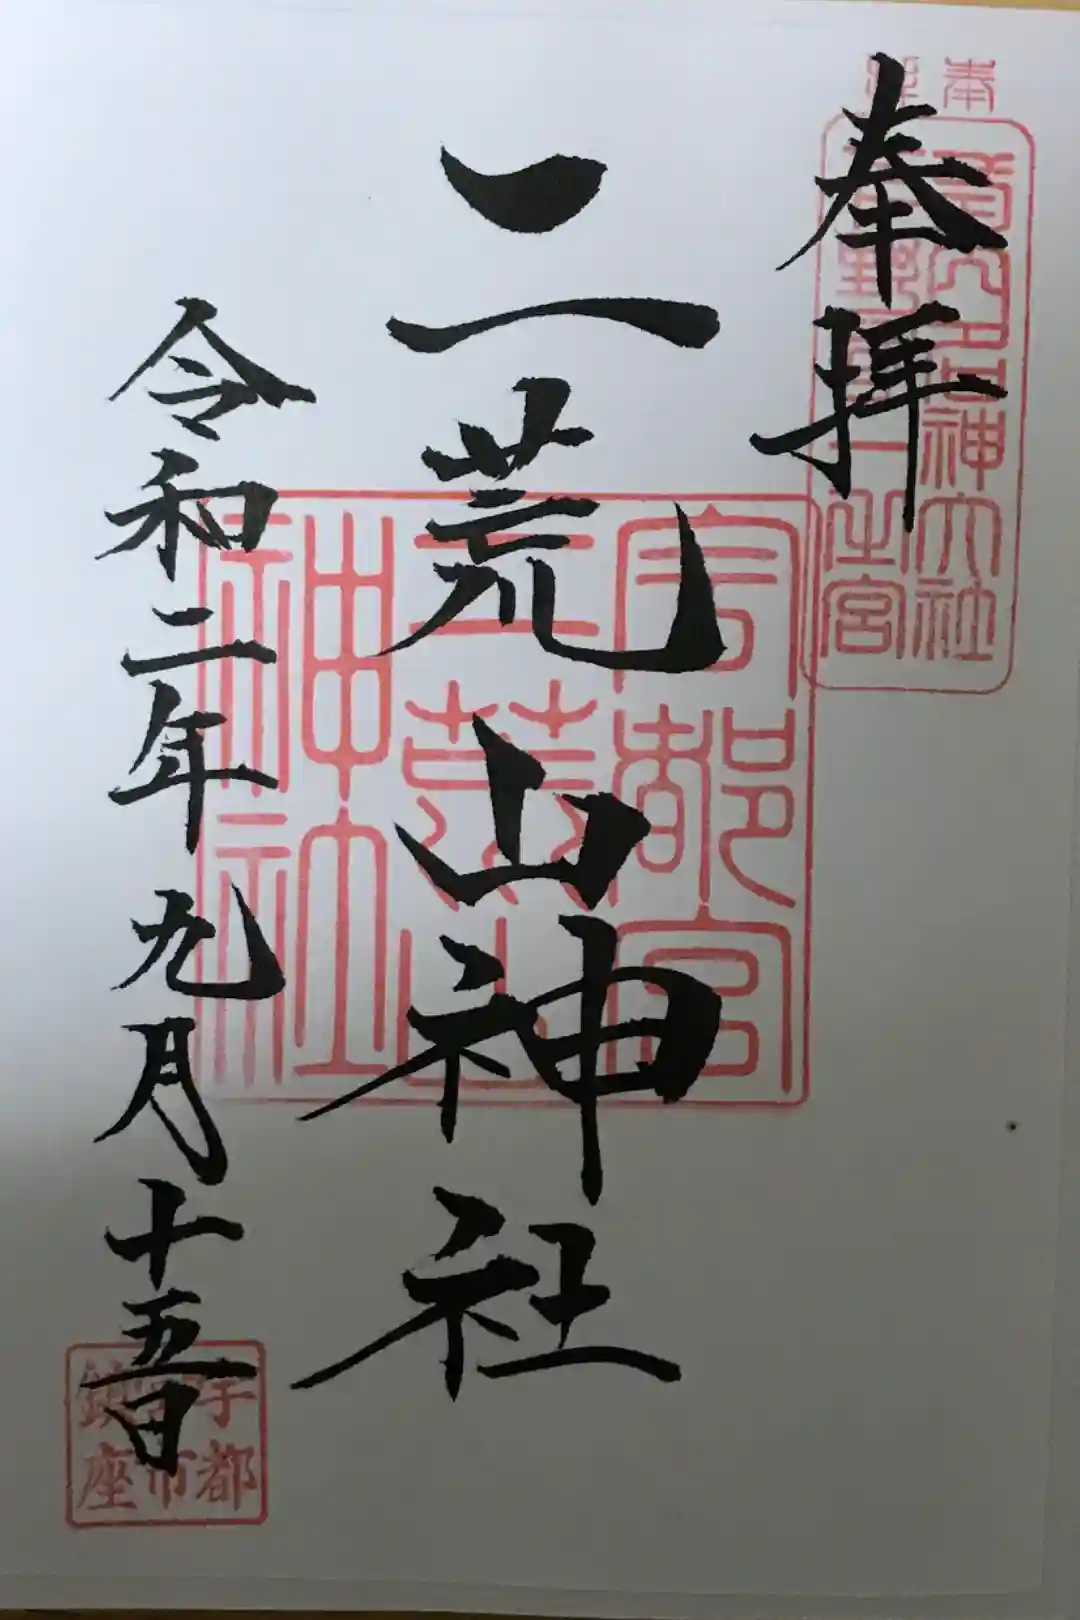 奉拝
二荒山神社
令和二年九月十五日
延喜式内名神大社
下野国一之宮
宇都宮
二荒山
神社
宇都
宮市
鎮座